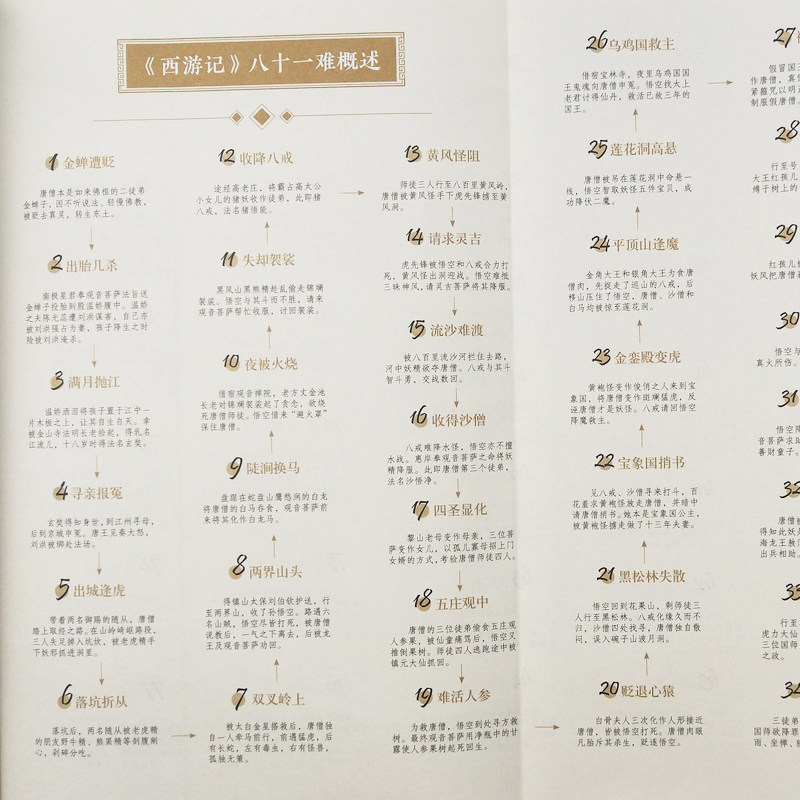 《西游记》八十一难概述
1 金蝉遭贬
唐僧本是如来佛祖的二徒弟
金蝉子，因不听说法、轻慢佛教，
被贬去真灵，转生东土。
2 出胎几杀
南极星君奉观音菩萨法旨送
金蝉子投胎到殷温娇腹中。温娇
之夫陈光蕊遭刘洪谋害，自己亦
被刘洪强占为妻，孩子降生之时
险被刘洪淹杀。
3 满月抛江
温娇洒泪将孩子置于江中一
片木板之上，让其自生自灭。幸
被金山寺法明长老拾起，得乳名
江流儿，十八岁时得法名玄奘。
4 寻亲报冤
玄奘得知身世，到江州寻母，
后到京城申冤。唐王见奏大怒，
刘洪被绑赴法场。
5 出城逢虎
带着两名御赐的随从，唐僧
踏上取经之路。在山岭崎岖路段，
三人失足掉入坑坎，被老虎精手
下妖邪抓进洞里。
6 落坑折从
落坑后，两名随从被老虎精
的朋友野牛精、熊罴精等剖腹剜
心，剁碎分吃。
7 双叉岭上
被太白金星搭救后，唐僧独
自一人牵马前行，前遇猛虎，后
有长蛇，左有毒虫，右有怪兽，
孤独无策。
8 两界山头
得镇山太保刘伯钦护送，行
至两界山，收了孙悟空。路遇六
名山贼，悟空尽皆打死，被唐僧
说教后，一气之下离去，后被龙
王及观音菩萨劝回。
9 陡涧换马
盘踞在蛇盘山鹰愁涧的白龙
将唐僧的白马吞食，观音菩萨前
来将其化作白龙马。
10 夜被火烧
借宿观音禅院，老方丈金池
长老对锦斓袈裟起了贪念，欲烧
死唐僧师徒。悟空借来“避火罩”
保住唐僧。
11 失却袈裟
黑风山黑熊精趁乱偷走锦斓
袈裟。悟空与其斗而不胜，请来
观音菩萨帮忙收服，讨回袈裟。
12 收降八戒
途经高老庄，将霸占高太公
小女儿的猪妖收作徒弟，此即猪
八戒，法名猪悟能。
13 黄风怪阻
师徒三人行至八百里黄风岭，
唐僧被黄风怪手下虎先锋掳至黄
风洞。
14 请求灵吉
虎先锋被悟空和八戒合力打
死，黄风怪出洞迎战。悟空难抵
三昧神风，请灵吉菩萨将其降服。
15 流沙难渡
被八百里流沙河拦住去路，
河中妖精欲夺唐僧。八戒与其斗
智斗勇，交战数回。
16 收得沙僧
八戒难降水怪，悟空亦不擅
水战。惠岸奉观音菩萨之命将妖
精降服。此即唐僧第三个徒弟，
法名沙悟净。
17 四圣显化
黎山老母变作母亲，三位菩
萨变作女儿，以孤儿寡母招上门
女婿的方式，考验唐僧师徒四人。
18 五庄观中
唐僧的三位徒弟偷食五庄观
人参果，被仙童痛骂后，悟空又
推倒果树。师徒四人逃跑途中被
镇元大仙抓回。
19 难活人参
为救唐僧，悟空到处寻方救
树。最终观音菩萨用净瓶中的甘
露使人参果树起死回生。
20 贬退心猿
白骨夫人三次化作人形接近
唐僧，皆被悟空打死。唐僧肉眼
凡胎斥其杀生，贬逐悟空。
21 黑松林失散
悟空回到花果山，剩师徒三
人行至黑松林。八戒化缘久而不
归，沙僧四处找寻，唐僧独自散
闷，误入碗子山波月洞。
22 宝象国捎书
见八戒、沙僧寻来打斗，百
花羞求黄袍怪放走唐僧，并暗中
请唐僧捎书。她本是宝象国公主，
被黄袍怪掳走做了十三年夫妻。
23 金銮殿变虎
黄袍怪变作俊俏之人来到宝
象国，将唐僧变作斑斓猛虎，反
诬唐僧才是妖怪。八戒请回悟空
降魔救主。
24 平顶山逢魔
金角大王和银角大王为食唐
僧肉，先捉走了巡山的八戒，后
移山压住了悟空，唐僧、沙僧和
白马均被惊至莲花洞。
25 莲花洞高悬
唐僧被吊在莲花洞中命悬一
线，悟空智取妖怪五件宝贝，成
功降伏二魔。
26 乌鸡国救主
借宿宝林寺，夜里乌鸡国国
王鬼魂向唐僧申冤。悟空找太上
老君讨得仙丹，救活已故三年的
国王。
27
假冒国王
作唐僧，真
紧箍咒以明
制服假唐僧
28
行至号
大王红孩儿
缚于树上的
29
红孩儿
妖风把唐僧
30
悟空与
真火所伤。
31
悟空降
音菩萨求助
善财童子。
32
唐僧被
得知此妖是
海龙王敖
出兵相助。
33
虎力大仙
三位国师
之政。
34
三徒弟
国师欲降罪
雨、坐禅、